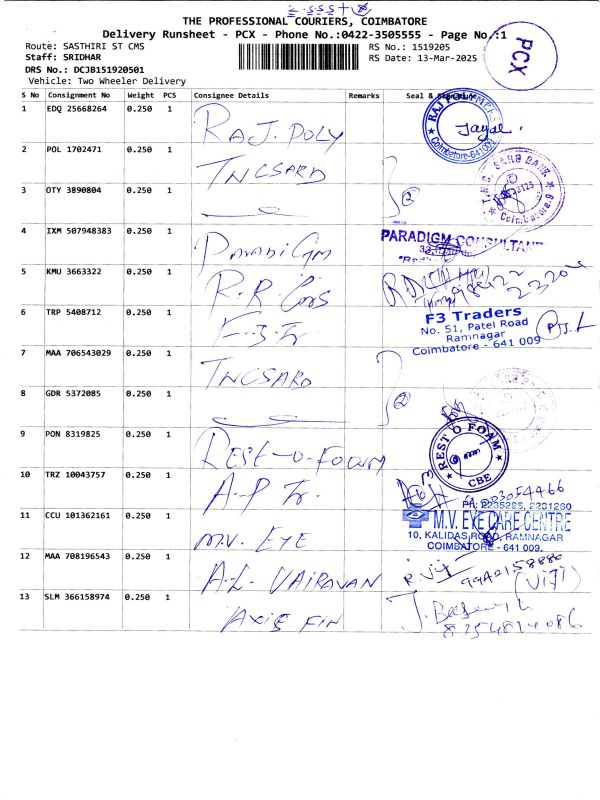 THE PROFESSIONAL COURIERS, COIMBATORE
Delivery Runsheet - PCX - Phone No.:0422-3505555 - Page No.:1
PCX
Route: SASTHIRI ST CMS
RS No.: 1519205
Staff: SRIDHAR
RS Date: 13-Mar-2025
DRS No.: DCJB151920501
Vehicle: Two Wheeler Delivery
S No Consignment No Weight PCS Consignee Details Remarks Seal &
1 EDQ 25668264 0.250 1 RAJ. POLY
Coimbatore-641009
2 POL 1702471 0.250 1 TNCSARD
SARD BANK
Coimbatore-9
3 OTY 3890804 0.250 1
4 IXM 507948383 0.250 1 ParadiGm
PARADIGM CONSULTANT
5 KMU 3663322 0.250 1 R.R. Cons
6 TRP 5408712 0.250 1 F-3-Tr
F3 Traders
No. 51, Patel Road
Ramnagar
Coimbatore - 641 009
7 MAA 706543029 0.250 1 TNCSARD
8 GDR 5372085 0.250 1
9 PON 8319825 0.250 1 REST-O-FOAM
REST O FOAM
CBE
10 TRZ 10043757 0.250 1 A-P Tr.
11 CCU 101362161 0.250 1 M.V. EYE
PH: 2235286, 2231260
M.V. EYE CARE CENTRE
10, KALIDAS ROAD, RAMNAGAR
COIMBATORE - 641 009.
12 MAA 708196543 0.250 1 A-L- VAIRAVAN
(VIJI)
13 SLM 366158974 0.250 1 AXIS FIN